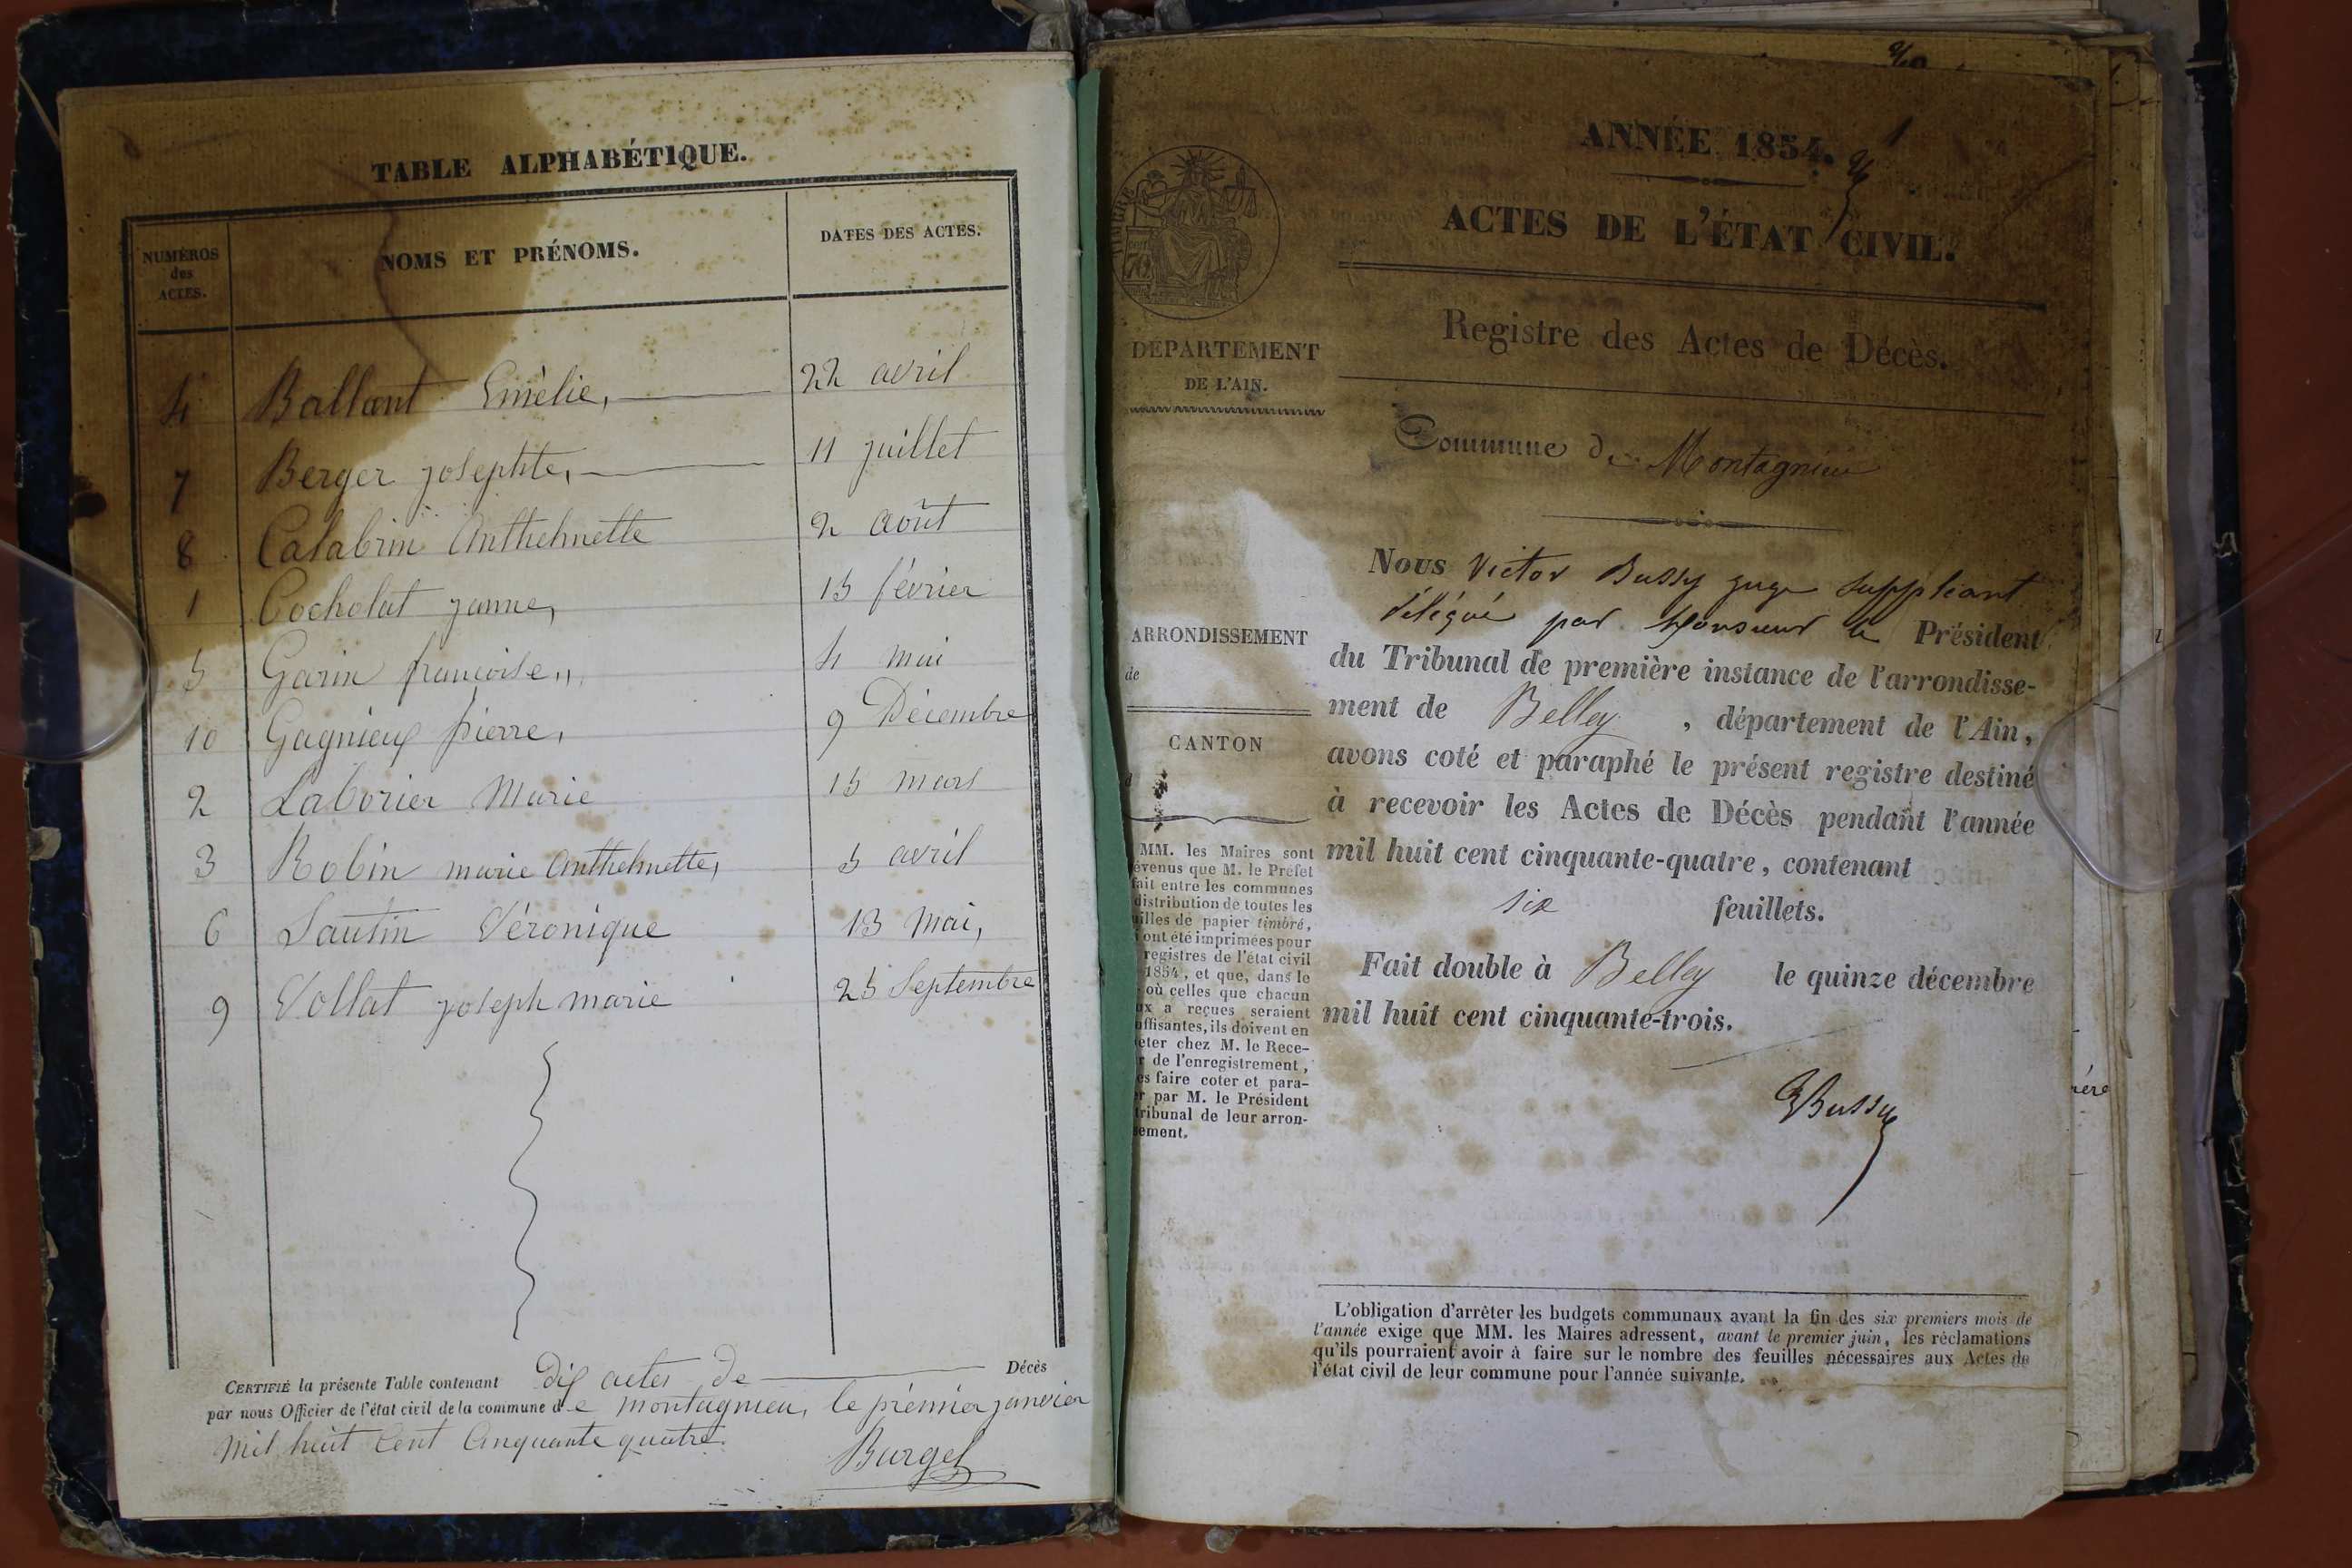 TABLE ALPHABÉTIQUE.
NUMÉROS des ACTES.
NOMS ET PRÉNOMS.
DATES DES ACTES.
4 Ballant Emélie, 22 avril
7 Berger josephte, 11 juillet
8 Calabrin Anthelmette 2 août
1 Cocholat janne, 15 février
5 Garin françoise,, 4 mai
10 Gagnieux pierre, 9 Décembre
2 Laborier Marie 15 mars
3 Robin marie Anthelmette, 5 avril
6 Sautin Véronique 13 Mai,
9 Vollat joseph marie 25 Septembre
CERTIFIÉ la présente Table contenant dix actes de Décès
par nous Officier de l'état civil de la commune de montagnieu, le prémier janvier
mil huit Cent Cinquante quatre.
Burgel
ANNÉE 1854.
1
ACTES DE L'ÉTAT CIVIL.
Registre des Actes de Décès.
Commune de Montagnieu
TIMBRE
70
DÉPARTEMENT
DE L'AIN.
ARRONDISSEMENT
de
CANTON
d
MM. les Maires sont
évenus que M. le Préfet
fait entre les communes
distribution de toutes les
uilles de papier timbré,
i ont été imprimées pour
registres de l'état civil
1854, et que, dans le
où celles que chacun
ux a reçues seraient
uffisantes, ils doivent en
eter chez M. le Rece-
r de l'enregistrement,
es faire coter et para-
er par M. le Président
tribunal de leur arron-
sement.
Nous Victor Bussy juge Suppléant
délégué par Monsieur le Président
du Tribunal de première instance de l'arrondisse-
ment de Belley, département de l'Ain,
avons coté et paraphé le présent registre destiné
à recevoir les Actes de Décès pendant l'année
mil huit cent cinquante-quatre, contenant
six feuillets.
Fait double à Belley le quinze décembre
mil huit cent cinquante-trois.
VBussy
L'obligation d'arrêter les budgets communaux avant la fin des six premiers mois de
l'année exige que MM. les Maires adressent, avant le premier juin, les réclamations
qu'ils pourraient avoir à faire sur le nombre des feuilles nécessaires aux Actes de
l'état civil de leur commune pour l'année suivante.